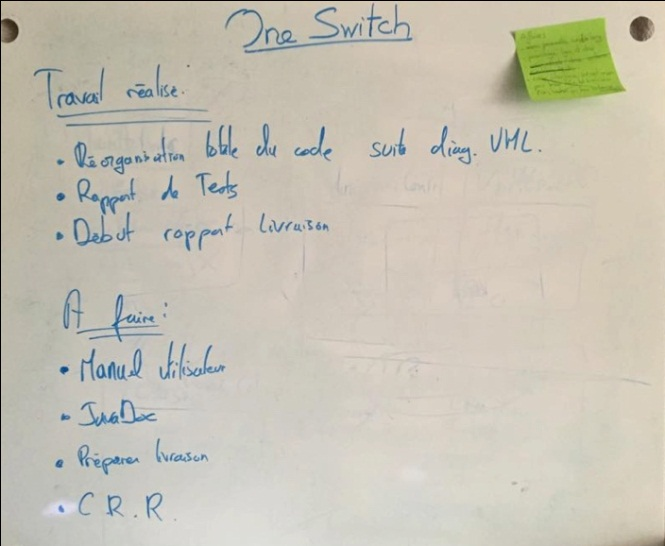 One Switch
Travail réalisé:
• Réorganisation totale du code suite diag. UML.
• Rapport de Tests
• Début rapport Livraison
A faire:
• Manuel utilisateur
• JavaDoc
• Préparer livraison
• C.R.R.